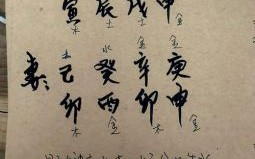 寅 辰 戌 申
木 土 土 金
土 水 金 金
妻: 己 癸 辛 庚
卯 酉 卯 申
木 金 木 金